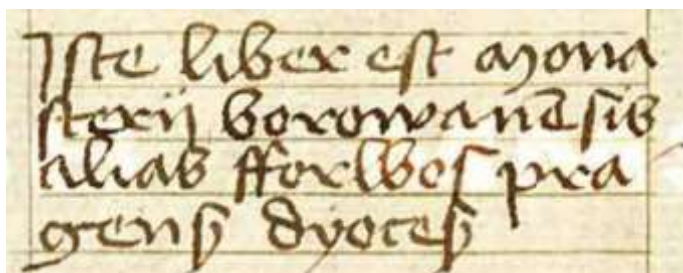 Iste liber est mona
sterij borowanēsis
alias fforbes pra
gensꝫ dyocesꝫ